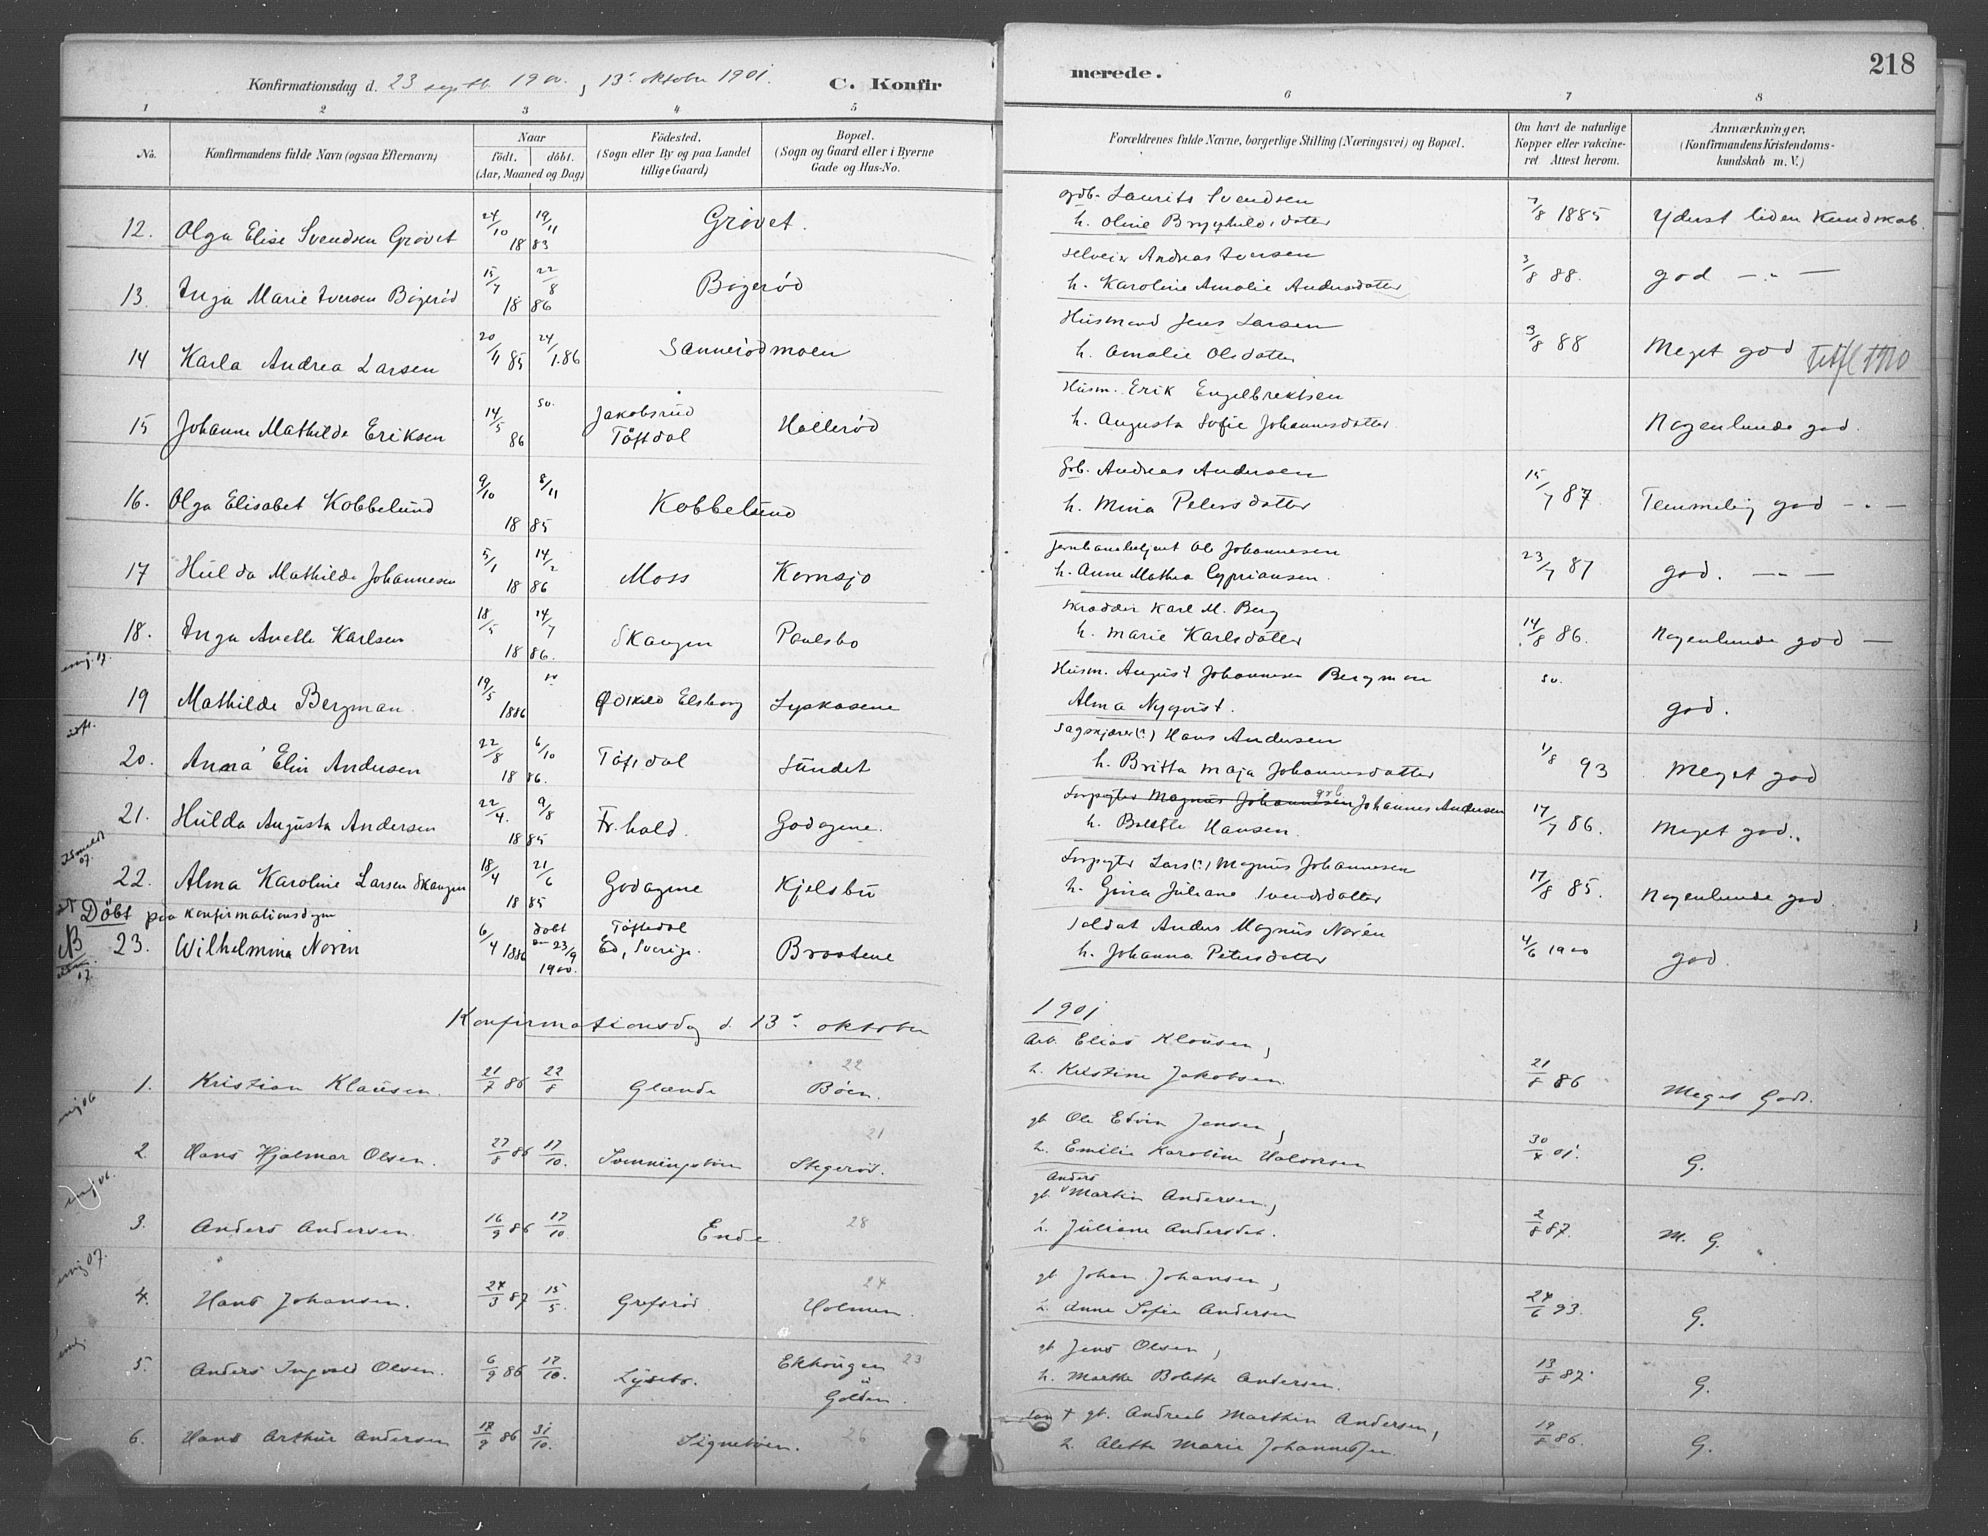 218
Konfirmationsdag d. 23 septb. 1900, 13de oktober 1901. C. Konfirmerede.
1 2 3 4 5 6 7 8
No. Konfirmandens fulde Navn (ogsaa Efternavn) Naar født. døbt. (Aar, Maaned og Dag) Fødested. (Sogn eller By og paa Landet tillige Gaard) Bopæl. (Sogn og Gaard eller i Byerne Gade og Hus-No. Forældrenes fulde Navne, borgerlige Stilling (Næringsvei) og Bopæl. Om havt de naturlige Kopper eller vakcineret Attest herom. Anmærkninger, (Konfirmandens Kristendomskundskab m. V.)
12. Olga Elise Svendsen Grøvet 24/10 19/11 1883 Grøvet. gdb. Laurits Svendsen h. Oline Brynhildsdatter 7/8 1885 Yderst liden Kundskab.
13. Inga Marie Iversen Bøgerød 15/7 22/8 1886 Bøgerød Selveier Andreas Iversen h. Karoline Amalie Andersdatter 3/8 88. god — " —
14 Karla Andrea Larsen 20/11 85 24/1.86 Sannerødmoen Husmand Jens Larsen h. Amalie Olsdatter 3/8 88 Meget god
15 Johanne Mathilde Eriksen 14/5 86 sv. Jakobsrud Töftdal Hallerød Husm. Erik Engelbrektsen h. Augusta Sofie Johannesdatter Nogenlunde god.
16. Olga Elisabet Kobbelund 9/10 8/11 1885 Kobbelund Grb. Andreas Andersen h. Mina Petersdatter 15/7 87 Temmelig god — " —
17 Hulda Mathilde Johannesen 5/1 14/2 1886 Moss Kornsjø Jernbanebetjent Ole Johannesen h. Anne Mathea Cypriansen. 23/7 87 god. — " —
18. Inga Anette Karlsen 18/5 14/7 1886. Skaugen Paulsbo Skrædder Karl M. Berg h. Marie Karlsdatter 14/8 86. Nogenlunde god —
19 Mathilde Bergman. 19/5 1886 sv. Ödskild Elsborg Lyskasene Husm. August Johannesen Bergman Alma Nyqvist. sv. god.
20. Anna Elin Andersen 22/8 6/10 1886. Töftdal Sundet Sagskjærer(?) Hans Andersen h. Britta Maja Johannesdatter 1/8 93 Meget god
21. Hulda Augusta Andersen 22/4. 9/8 1885 Fr.hald. Godagene. Forpagter Magnus Johannesen grb Johannes Andersen h. Bolette Hansen. 17/7 86. Meget god.
22. Alma Karoline Larsen Skaugen 18/4 21/6 1885 Godagene Kjelsbu Forpagter Lars(?) Magnus Johannesen h. Gina Juliane Svendsdatter 17/8 85. Nogenlunde god
Døbt paa Konfirmationsdagen
NB 23. Wilhelmina Norén 6/4 1886 døbt den 23/9 1900. Töftedal Ed, Sverige. Braatene Soldat Anders Magnus Norén h. Johanna Petersdatter 4/6 1900 god.
Konfirmationsdag d. 13de oktober 1901
1. Kristian Klausen. 21/7 86 22/8 Glænde 22 Bøen. Arb. Elias Klausen, h. Kristine Jakobsen. 21/8 86 Meget Godt.
2 Hans Hjalmar Olsen. 27/8 86 17/10. Svenningsbøen 21 Stegerød. gb. Ole Edvin Jensen, h. Emilie Karoline Halvorsen 30/4 01. G.
3. Anders Andersen. 16/9 86 17/10 Ende. 28 gb. Anders Martin Andersen, h. Juliane Andersdat. 2/8 87. M. G.
4. Hans Johansen. 24/3 87 15/5. Grefsrød. 24 Holmen. gb. Johan Johansen, h. Anne Sofie Andersen 24/6 93. G.
5. Anders Ingvald Olsen. 6/9 86 17/10. Lysebo. Ekhougen 23 Golden. gb Jens Olsen, h. Marthe Bolette Andersen. 13/8 87. G.
6. Hans Arthur Andersen 17/9 86 31/10. Signebøen. 26 + gb. Andreas Marthin Andersen, h. Alette Marie Johannessen 19/8 86. G.